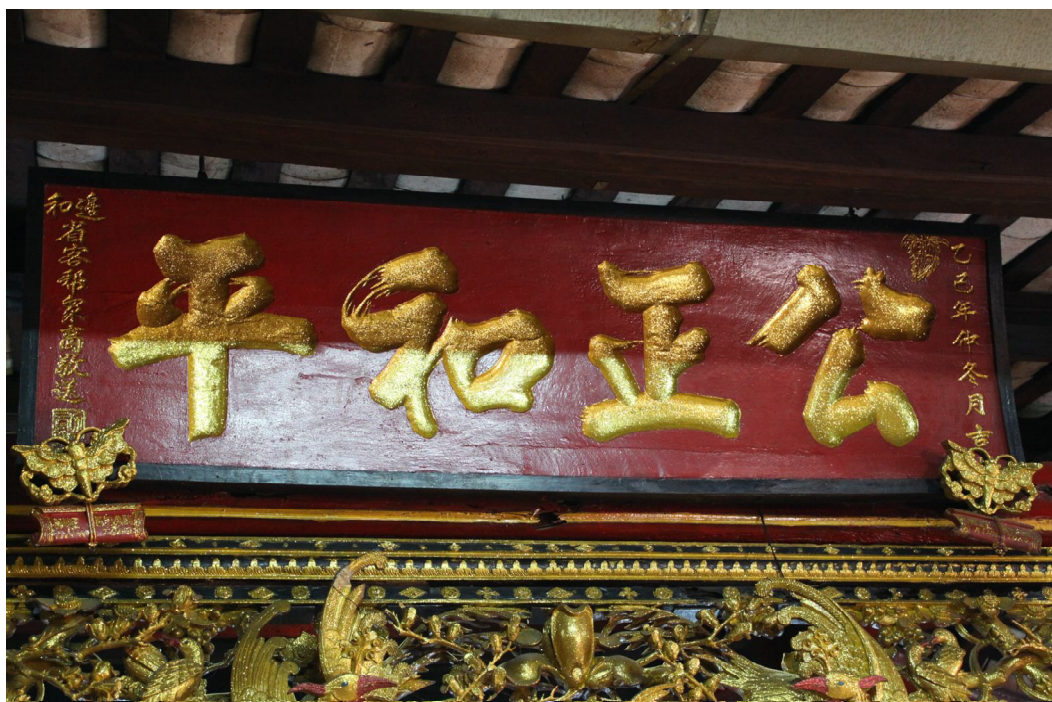 乙巳年仲冬月吉
公正和平
邊和省客帮衆商敬送